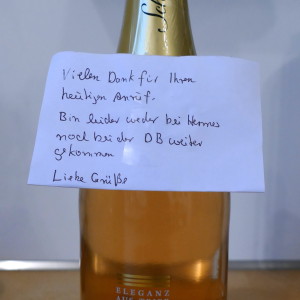 Vielen Dank für Ihren
heutigen Anruf.
Bin leider weder bei Hermes
noch bei der DB weiter
gekommen
Liebe Grüße
ELEGANZ